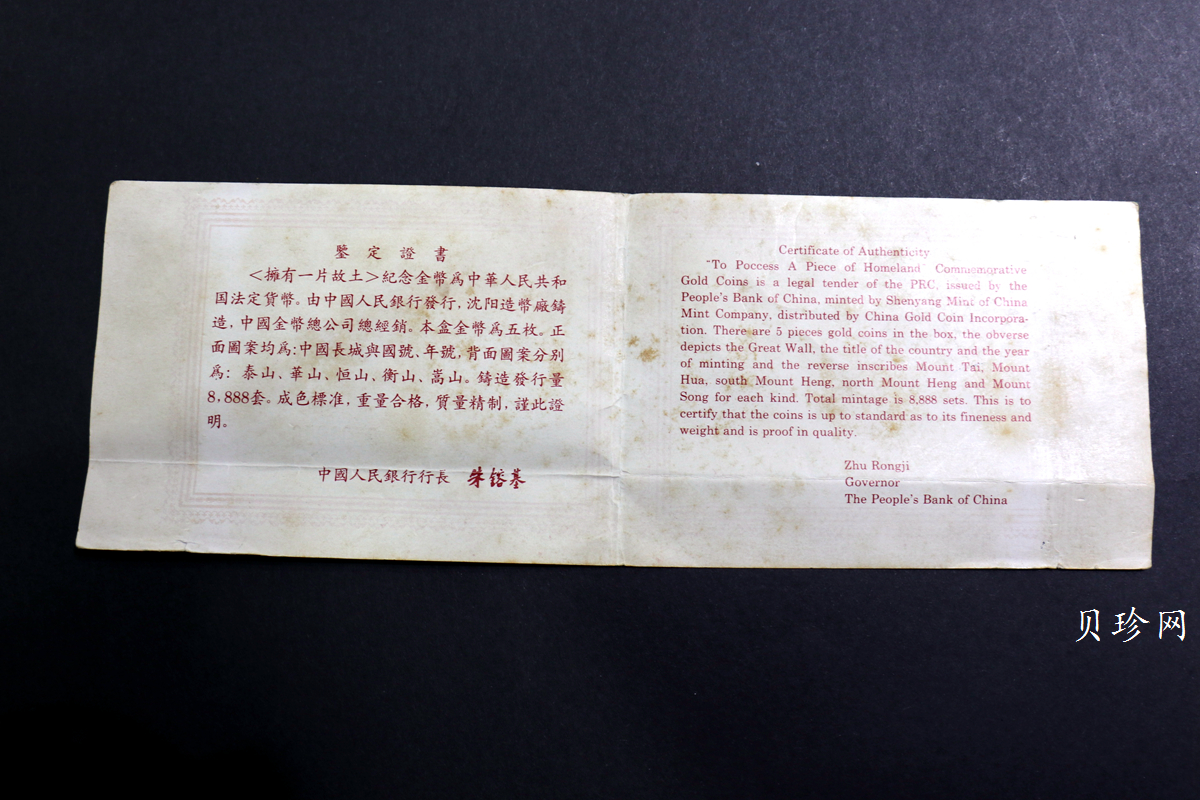 鑒定證書
<擁有一片故土>紀念金幣爲中華人民共和
国法定貨幣。由中國人民銀行發行,沈阳造幣廠鑄
造,中國金幣總公司總經銷。本盒金幣爲五枚。正
面圖案均爲:中國長城與國號、年號,背面圖案分别
爲:泰山、華山、恒山、衡山、嵩山。鑄造發行量
8,888套。成色標准,重量合格,質量精制,謹此證
明。
中國人民銀行行長 朱鎔基
Certificate of Authenticity
"To Poccess A Piece of Homeland" Commemorative
Gold Coins is a legal tender of the PRC, issued by the
People's Bank of China, minted by Shenyang Mint of China
Mint Company, distributed by China Gold Coin Incorpora-
tion. There are 5 pieces gold coins in the box, the obverse
depicts the Great Wall, the title of the country and the year
of minting and the reverse inscribes Mount Tai, Mount
Hua, south Mount Heng, north Mount Heng and Mount
Song for each kind. Total mintage is 8,888 sets. This is to
certify that the coins is up to standard as to its fineness and
weight and is proof in quality.
Zhu Rongji
Governor
The People's Bank of China
贝珍网